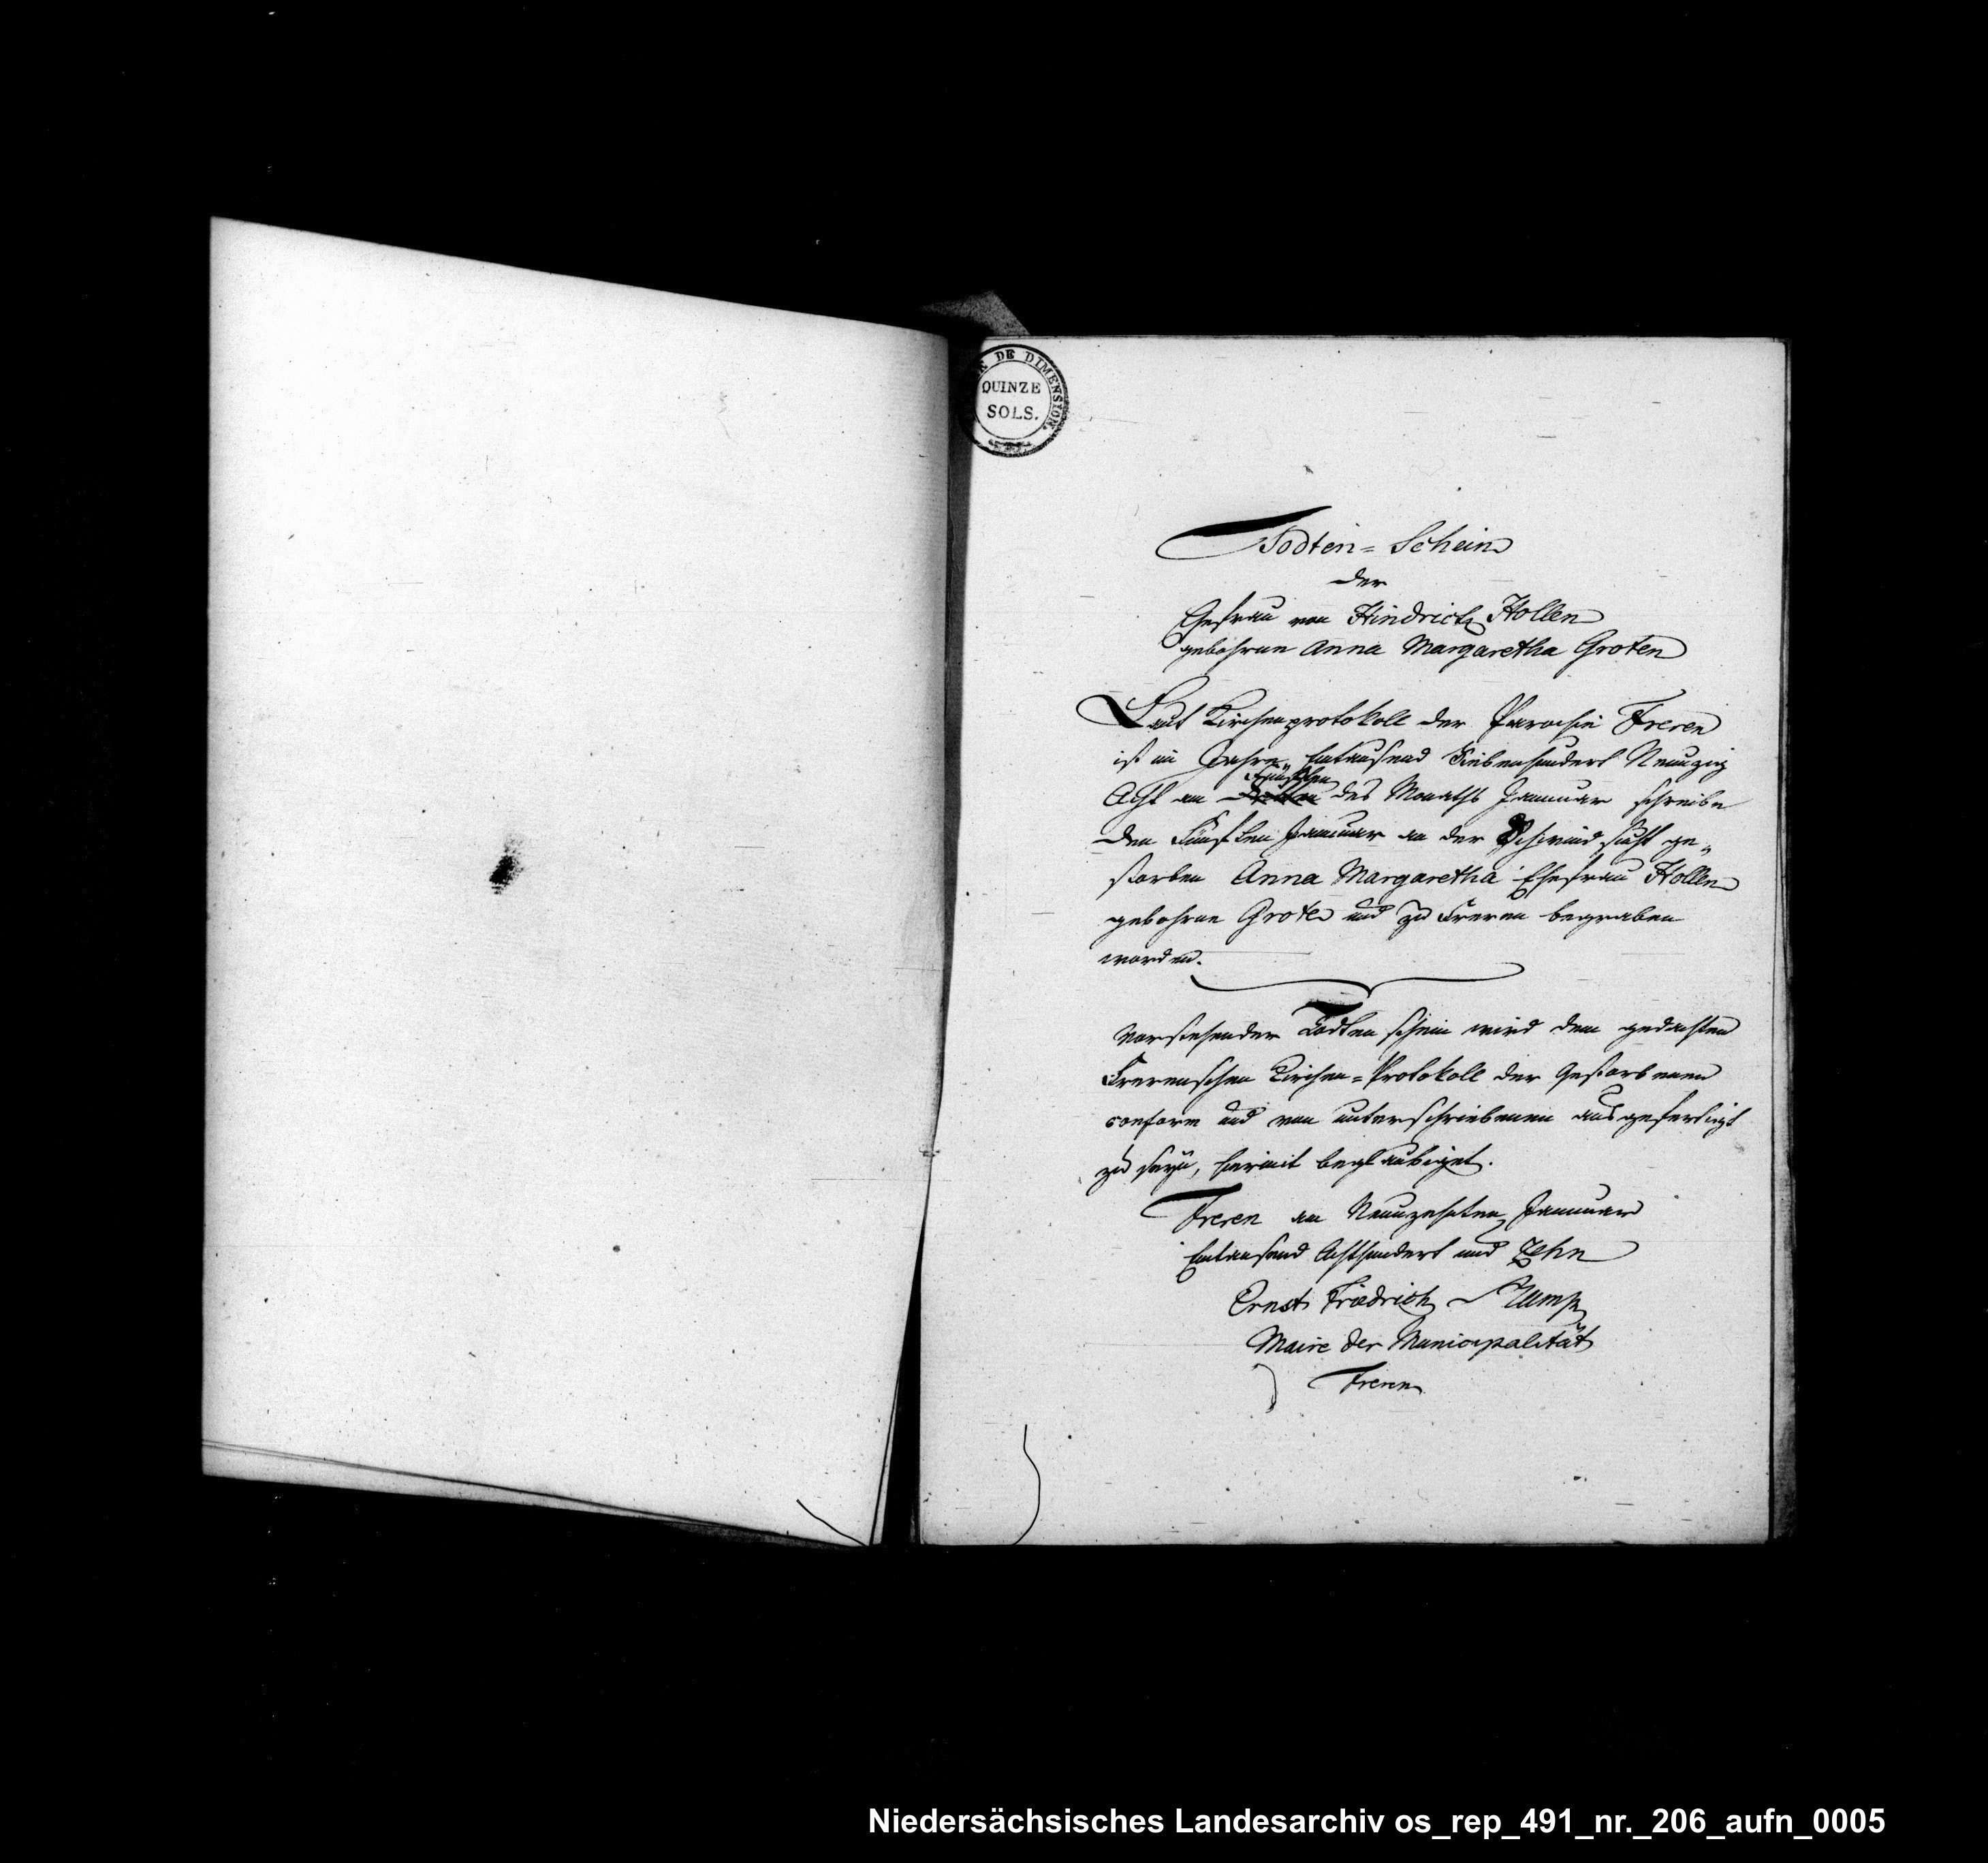 DE DIMENSION.
QUINZE
SOLS.
Todten=Schein
der
Ehefrau von Hindrich Hollen
gebohrne Anna Margaretha Groten
Laut Kirchenprotokoll der Parochie Freren
ist im Jahre„ Eintausend Siebenhundert Neunzig
Fünften
Acht am des Monaths Januar schreibe
den Fünften Januar an der Schwindsucht ge„
storben Anna Margaretha Ehefrau Hollen
gebohrne Grote und zu Freren begraben
worden.
Vorstehender Todtenschein wird dem gedachten
Frerenschen Kirchen=Protokoll der Gestorbenen
conform und von unterschriebenen ausgefertigt
zu seyn, hiemit beglaubiget.
Freren am Neunzehnten Januar
Eintausend Achthundert und Zehn
Ernst Friedrich
Maire der Municipalität
Freren
Niedersächsisches Landesarchiv os_rep_491_nr._206_aufn_0005